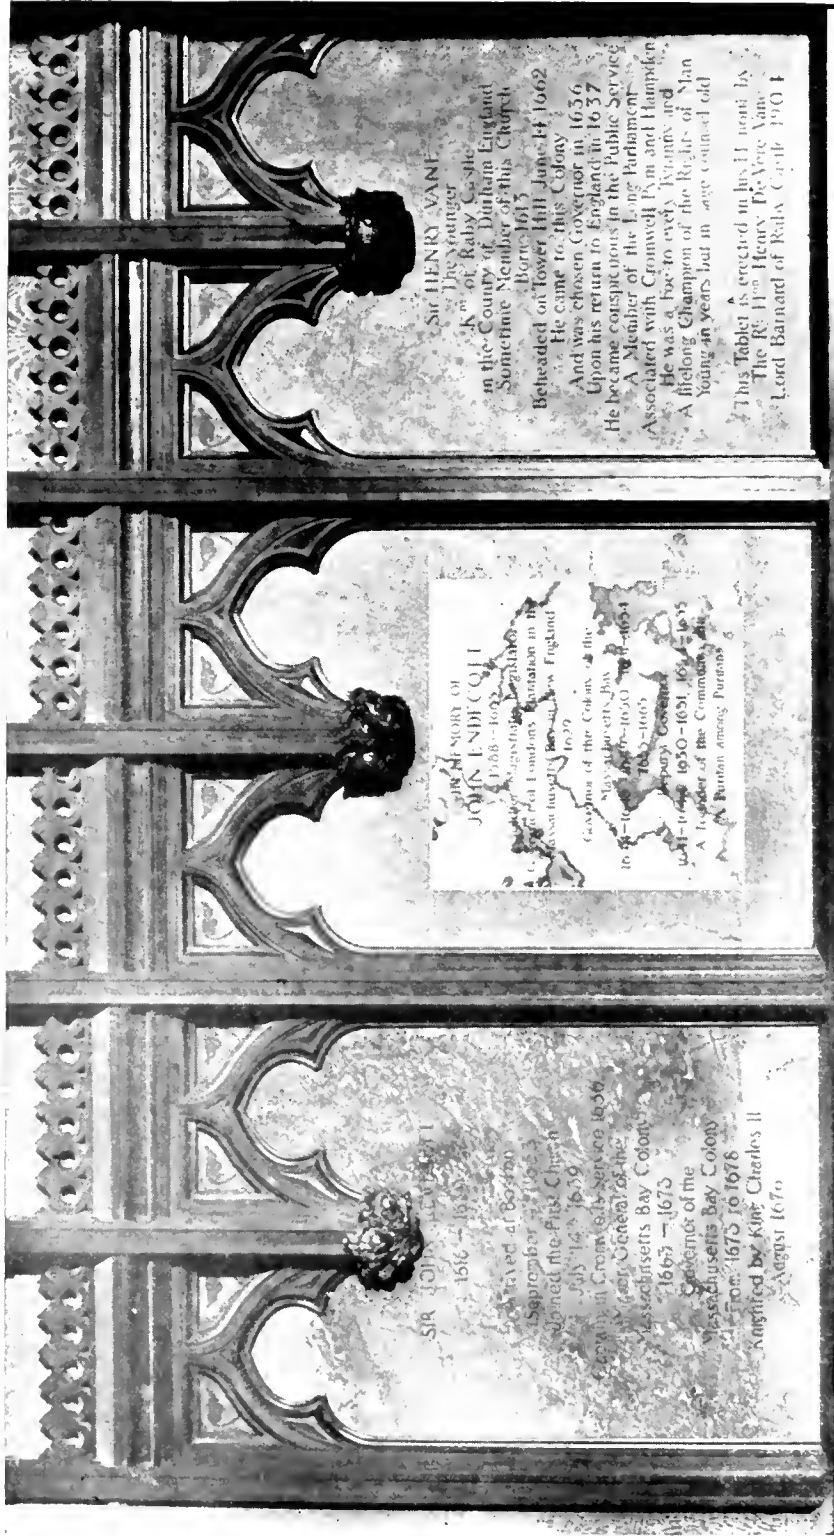 SIR JOHN
1616 – 
at Boston
September
Joined the First Church
July 14 1639
Captain in Cromwell's Service 1656
Major General of the
Massachusetts Bay Colony
1663 – 1673
Governor of the
Massachusetts Bay Colony
From 1673 to 1678
Knighted by King Charles II
August 1676
IN MEMORY OF
JOHN ENDECOTT
1588–
Legislator
London's Plantation in the
Massachusetts Bay in New England
1629
Governor of the Colony of the
Massachusetts Bay
1655–1665
Deputy Governor
1650–1651 1654–1655
A Founder of the Commonwealth
A Puritan among Puritans
Sir HENRY VANE
The Younger
of Raby Castle
in the County of Durham England
Sometime Member of this Church
Born 1613
Beheaded on Tower Hill June 14 1662
He came to this Colony
And was chosen Governor in 1636
Upon his return to England in 1637
He became conspicuous in the Public Service
A Member of the Long Parliament
Associated with Cromwell Pym and Hampden
He was a Foe to every Tyranny and
A lifelong Champion of the Rights of Man
Young in years but in sage counsel old
This Tablet is erected in his Honor by
The Rt Hon Henry De Vere Vane
Lord Barnard of Raby Castle 1904